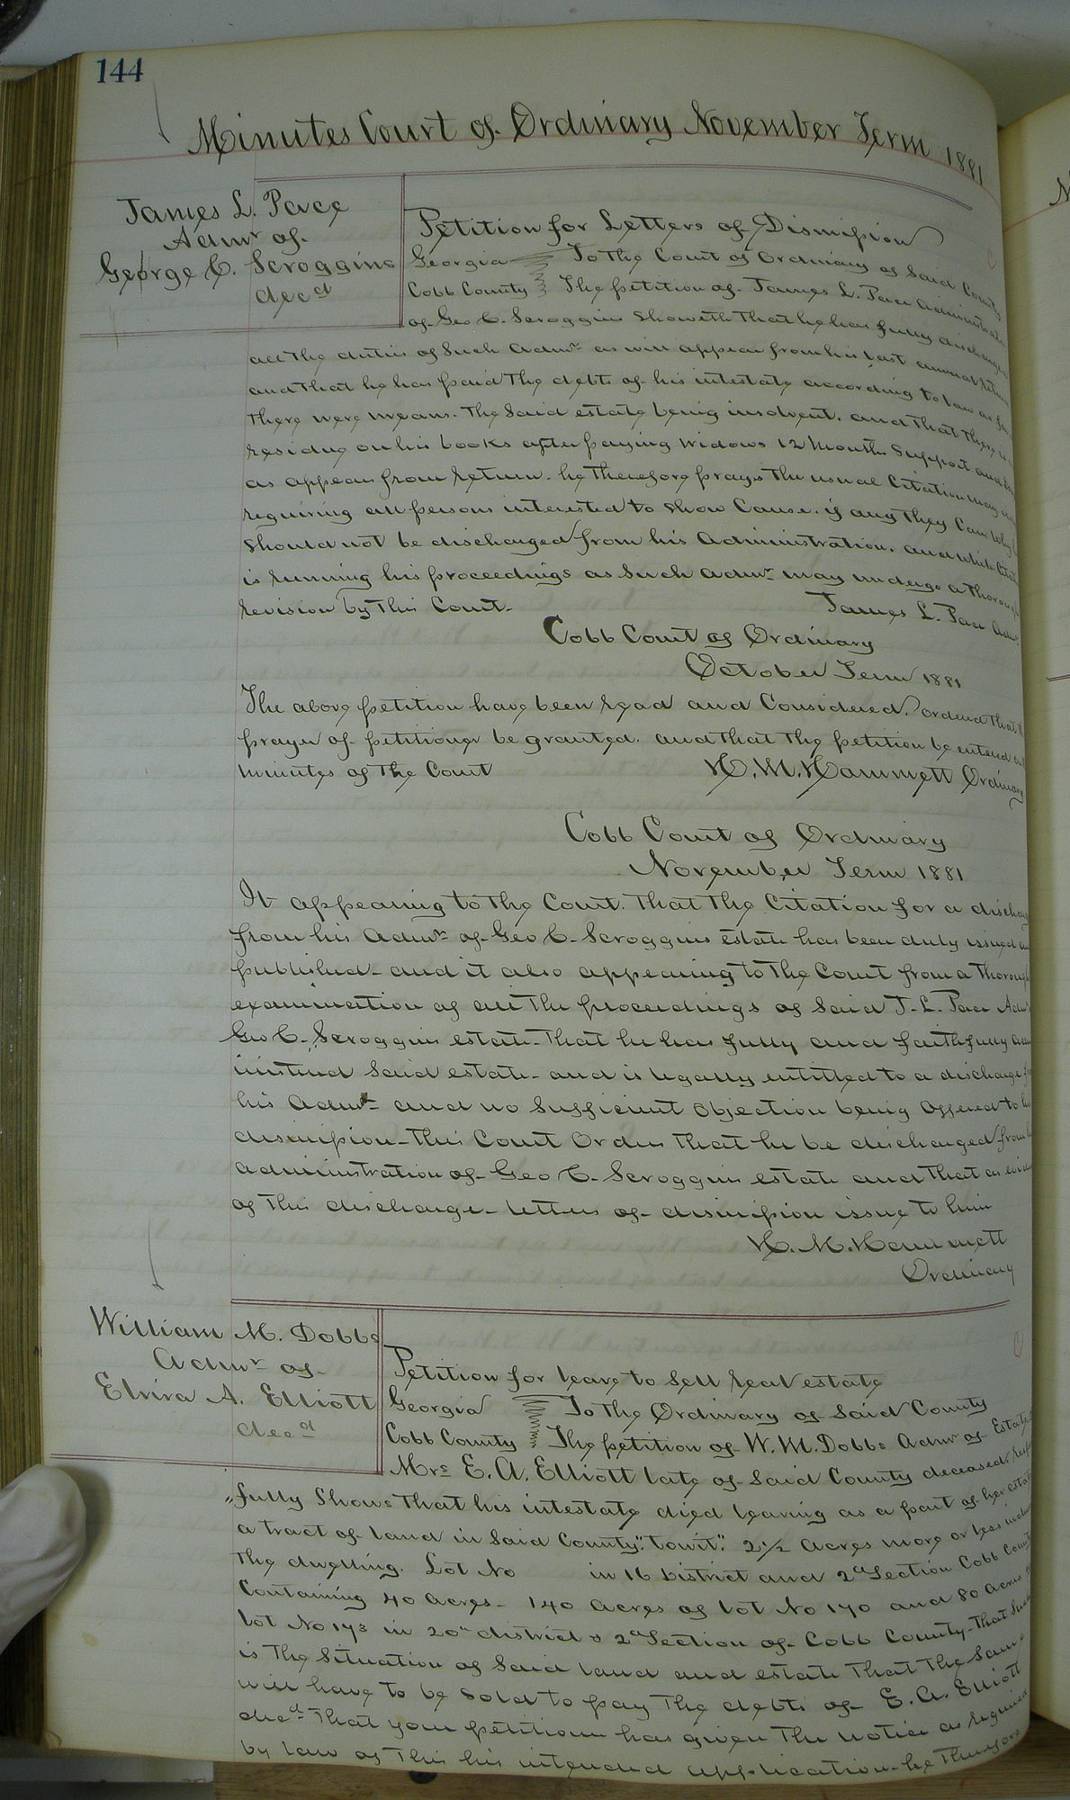 144
Minutes Court of Ordinary November Term 1881
James L. Pace
Admr of
George C. Scroggins
decd
Petition for Letters of Dismission
Georgia To the Court of Ordinary of Said County
Cobb County The petition of James L. Pace Administrator
of Geo C. Scroggins Showeth That he has fully discharged
all the duties of Such Admr as will appear from his last annual return
and that he has paid the debts of his intestate according to law as far
there were means. The Said estate being insolvent. and that there is
residue on his books after paying widows 12 months Support and
as appears from return. he therefore prays the usual Citation may
requiring all persons interested to Show Cause. if any they Can why he
Should not be discharged from his Administration. and while
is running his proceedings as Such Admr may undergo a thorough
revision by this Court.
James L. Pace Admr
Cobb Court of Ordinary
October Term 1881
The above petition have been read and Considered. Ordered that
prayer of petitioner be granted. and that the petition be entered on
minutes of the Court
H. M. Hammett Ordinary
Cobb Court of Ordinary
November Term 1881
It appearing to the Court. That the Citation for a discharge
from his Admr of Geo C. Scroggins estate has been duly issued
published. and it also appearing to the Court from a thorough
examination of all the proceedings of Said J. L. Pace Admr
Geo C. Scroggins estate. that he has fully and faithfully adm
inistered Said estate. and is legally entitled to a discharge
his Admr and no Sufficient Objection being Offered to his
dismission. This Court Orders that he be discharged from
administration of Geo C. Scroggins estate and that as
of this discharge. letters of dismission issue to him
H. M. Hammett
Ordinary
William M. Dobbs
Admr of
Elvira A. Elliott
decd
Petition for leave to Sell real estate
Georgia To the Ordinary of Said County
Cobb County The petition of W. M. Dobbs Admr of Estate
Mrs E. A. Elliott late of Said County deceased
fully Shows that his intestate died leaving as a part of her estate
a tract of land in Said County "towit" 2 1/2 Acres more or less
the dwelling. Lot No in 16 District and 2d Section Cobb County
Containing 40 Acres. 140 Acres of lot No 170 and 80 Acres
lot No 173 in 20th district & 2d Section of Cobb County. That Such
is the Situation of Said land and estate that the Same
will have to be Sold to pay the debts of E. A. Elliott
decd. That your petitioner has given the notice as required
by law of this his intended application. he therefore